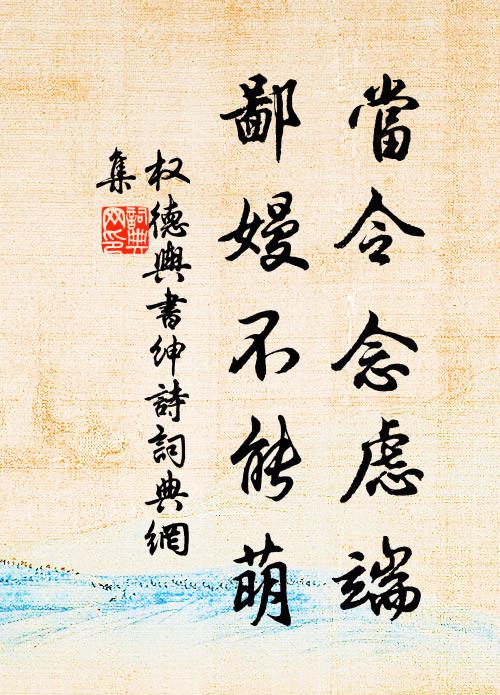 當令念慮端
鄙嫚不能萌
权德輿書紳詩詞典網
集
詞典网印